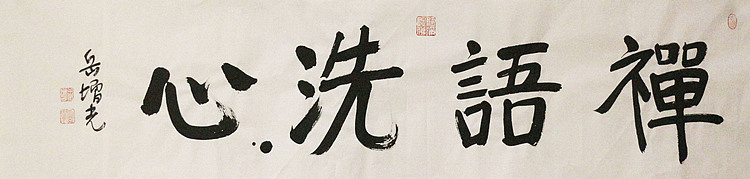 禪語洗心
岳增光